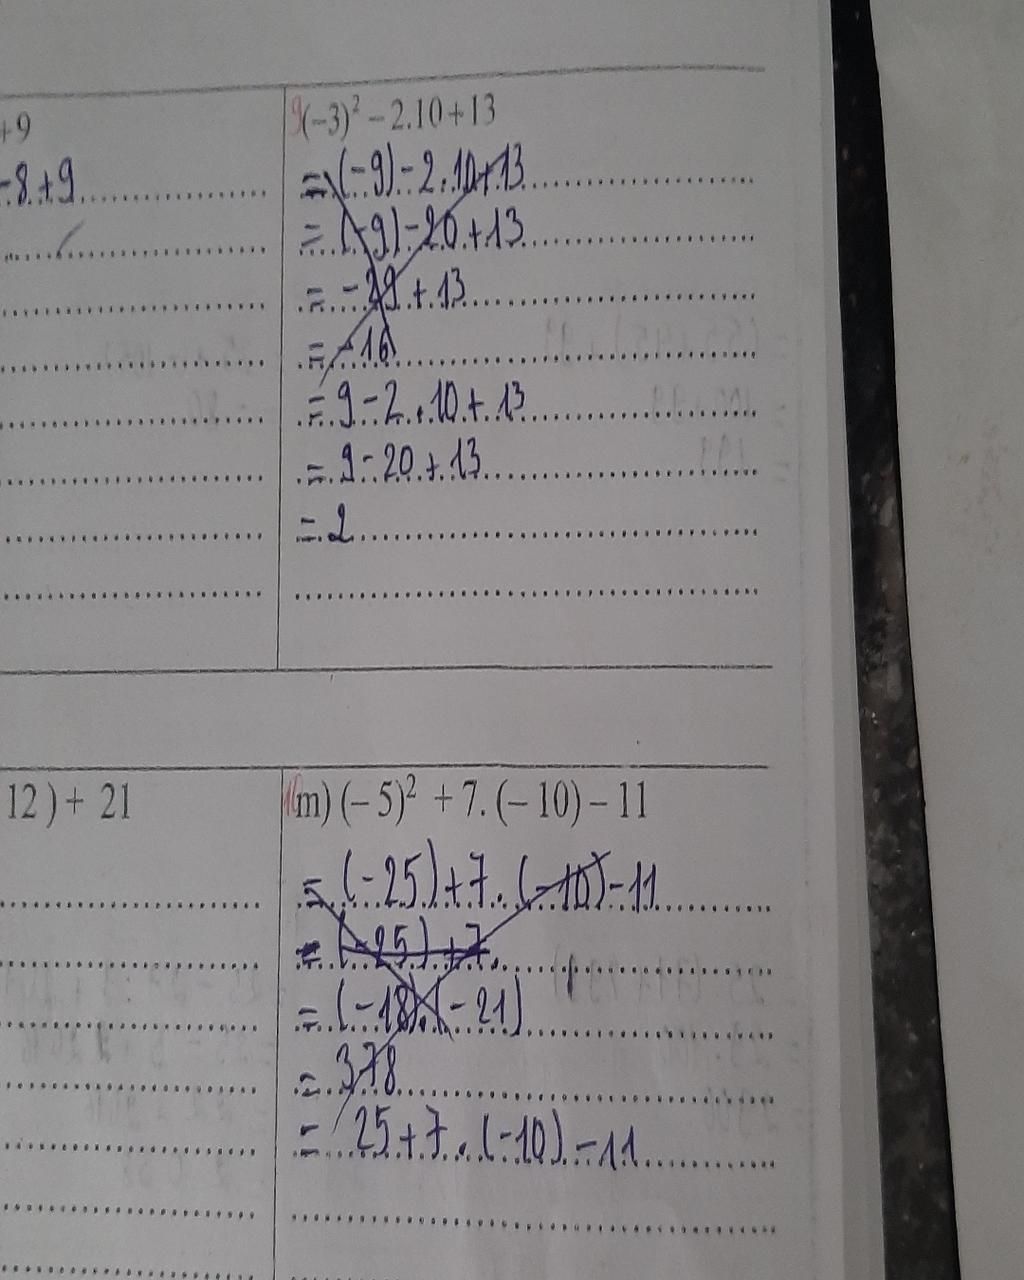 +9
-8+9
9(-3)² - 2.10+13
= (-9) - 2.10+13
= (-9) - 20 + 13
= -29 + 13
= -16
= 9 - 2.10 + 13
= 9 - 20 + 13
= 2
12) + 21
10m) (-5)² + 7.(-10) - 11
= (-25) + 7.(-10) - 11
= (-25) + 7.
= (-18).(-21)
= 378
= 25 + 7.(-10) - 11